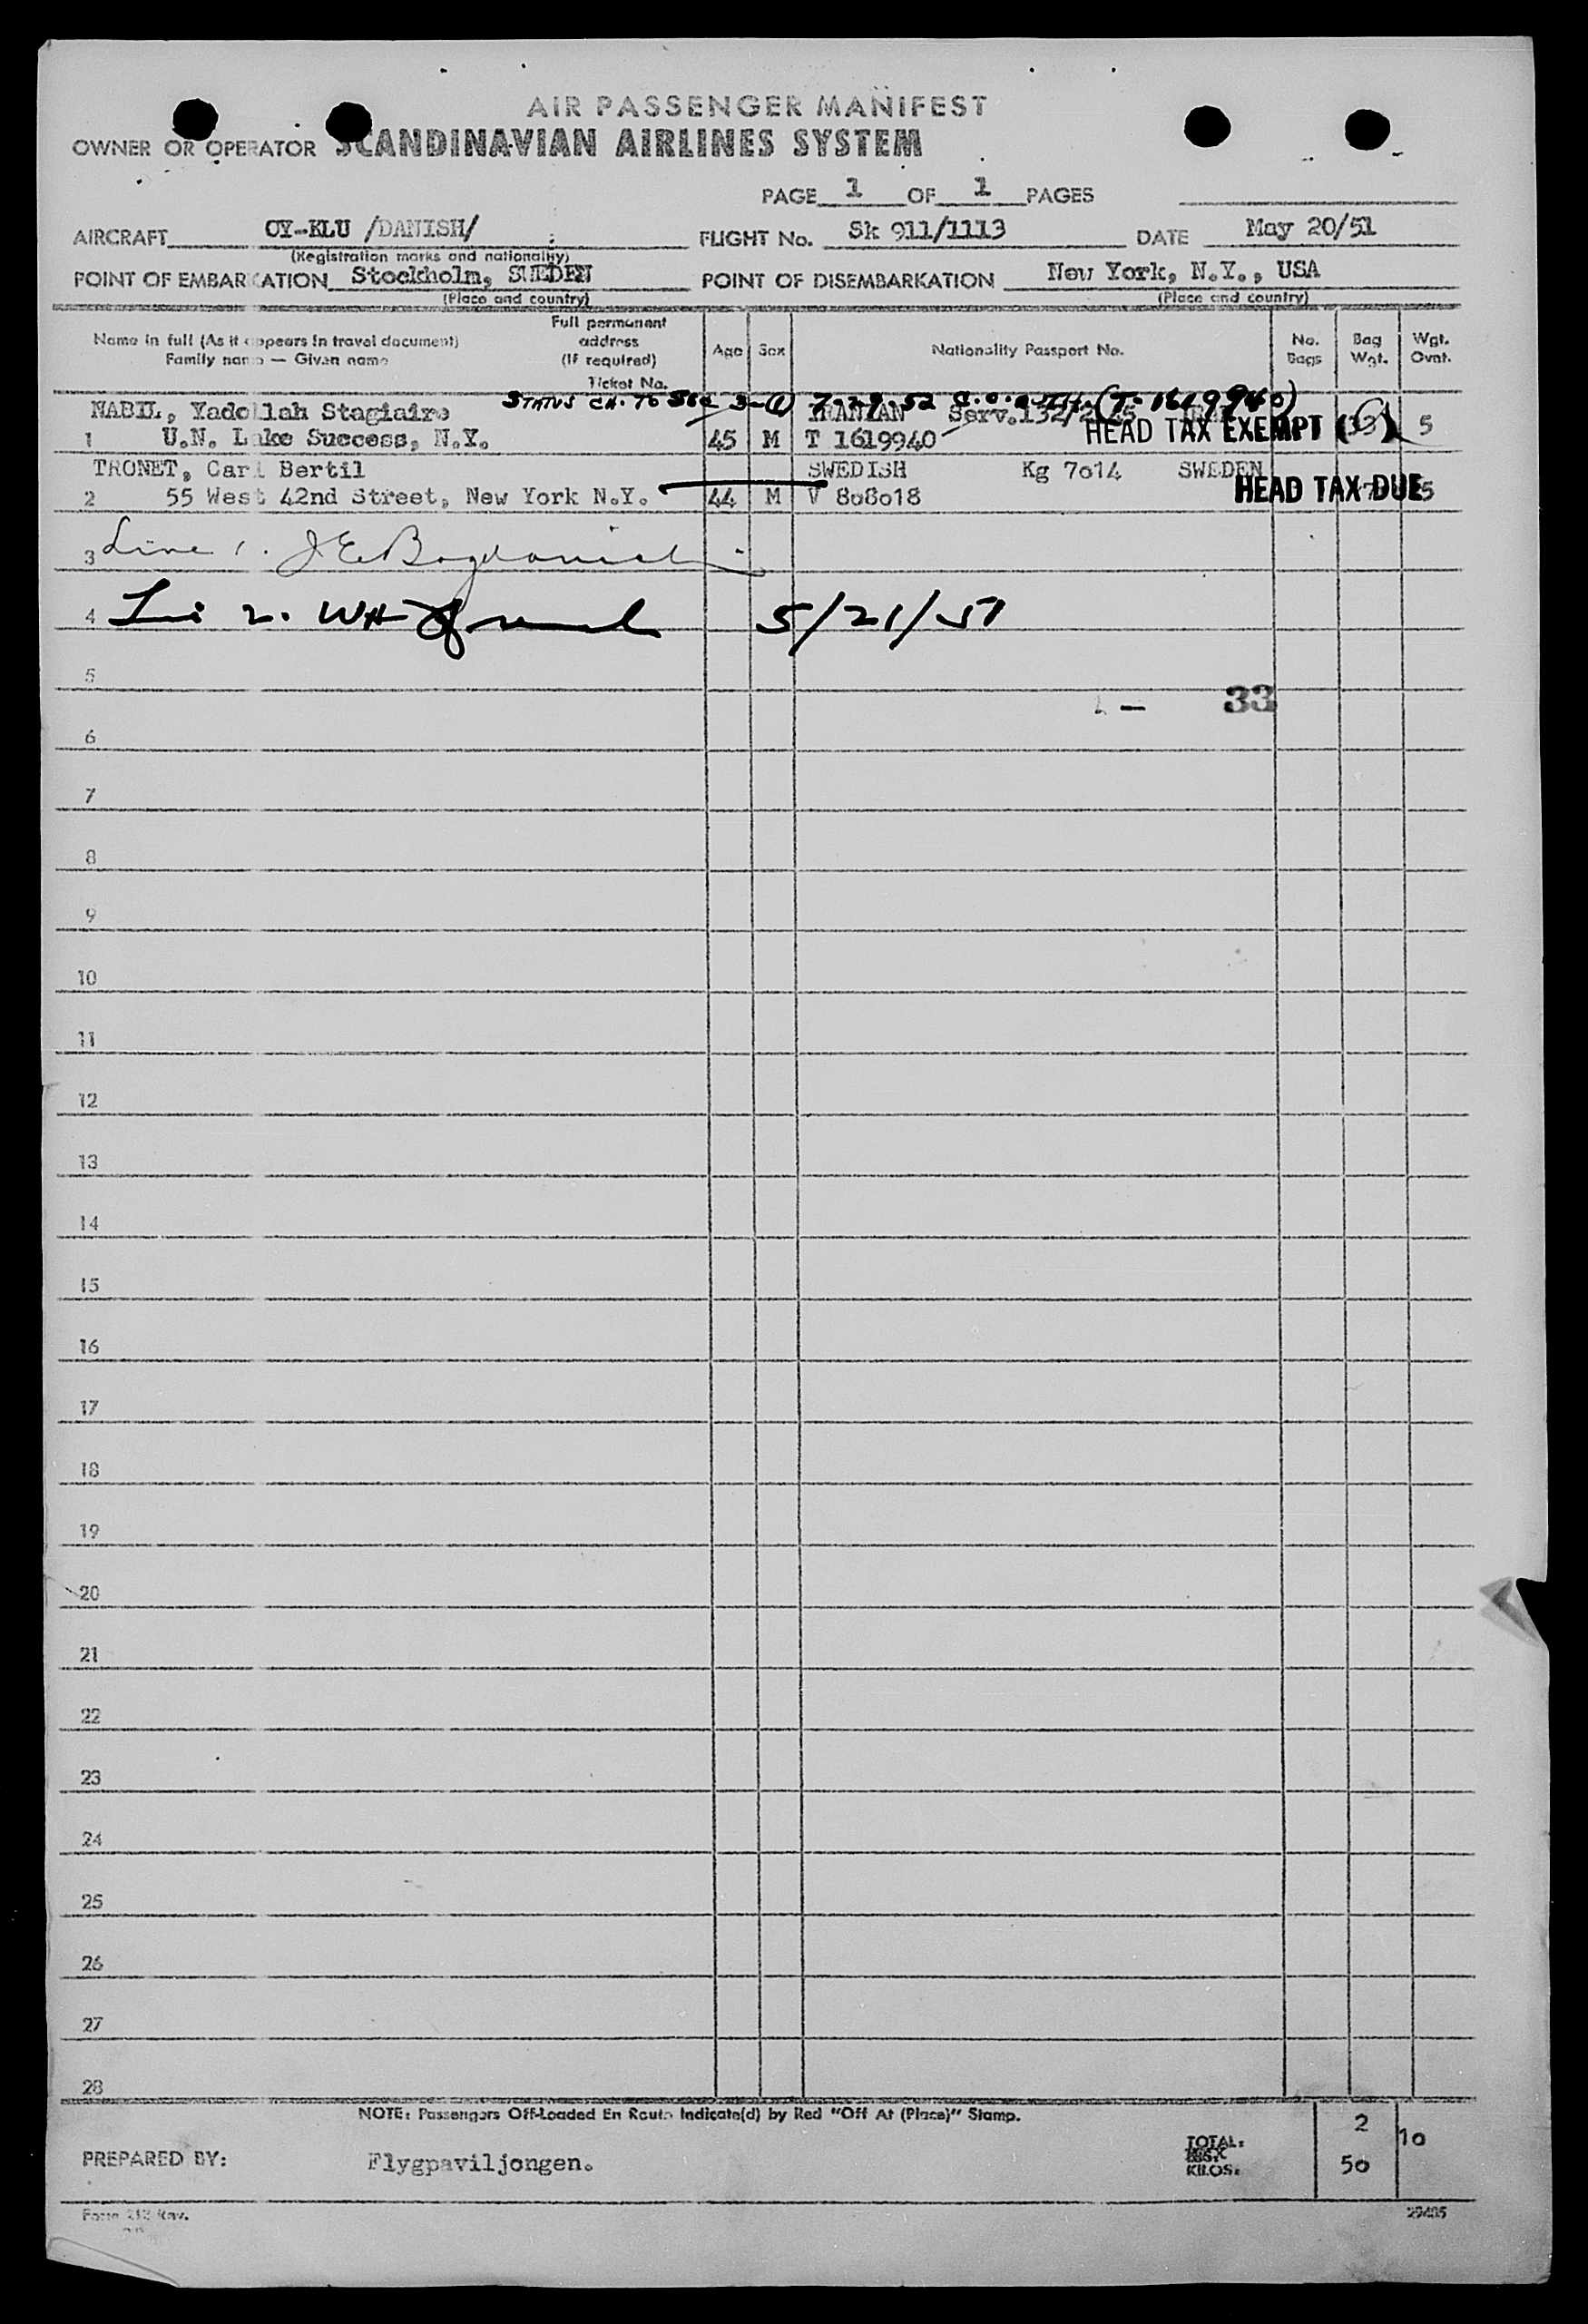 AIR PASSENGER MANIFEST
OWNER OR OPERATOR SCANDINAVIAN AIRLINES SYSTEM
PAGE 1 OF 1 PAGES
AIRCRAFT OY-KLU /DANISH/ FLIGHT No. Sk 911/1113 DATE May 20/51
(Registration marks and nationality)
POINT OF EMBARKATION Stockholm, SWEDEN POINT OF DISEMBARKATION New York, N.Y., USA
(Place and country) (Place and country)
Name in full (As it appears in travel document)
Family name — Given name
Full permanent
address
(If required)
Ticket No.
Age Sex Nationality Passport No. No. Bags Bag Wgt. Wgt. Ovnt.
STATUS CH. TO Sec 3-(1) 7-29-52 C.O. AUTH. (T-1619940)
NABIL, Yadollah Stagiaire IRANIAN Serv.132/
1 U.N. Lake Success, N.Y. 45 M T 1619940 HEAD TAX EXEMPT (6) 5
TRONET, Carl Bertil SWEDISH Kg 7o14 SWEDEN
2 55 West 42nd Street, New York N.Y. 44 M V 8o8o18 HEAD TAX DUE 5
3 Line 1. J E Bogdanich
4 Line 2. WH 5/21/51
5
33
6
7
8
9
10
11
12
13
14
15
16
17
18
19
20
21
22
23
24
25
26
27
28
NOTE: Passengers Off-Loaded En Route Indicate(d) by Red "Off At (Place)" Stamp.
PREPARED BY: Flygpaviljongen.
TOTAL: 2 10
LBS.
KILOS: 50
Form 212 Rev. 29405